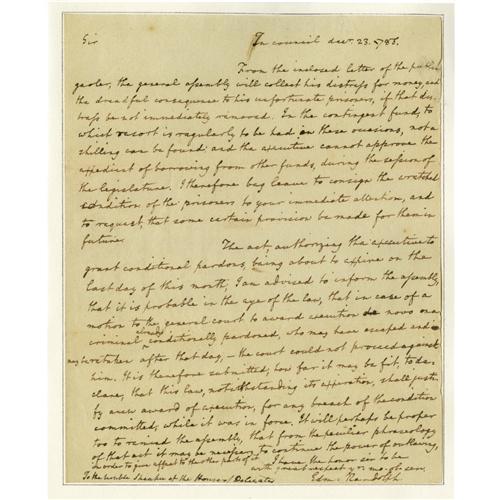 Sir
In council decr. 23. 1786.
From the inclosed letter of the public
gaoler, the general assembly will collect his distress for money, and
the dreadful consequence to his unfortunate prisoners, if that dis-
tress be not immediately removed. In the contingent fund, to
which resort is regularly to be had on these occasions, not a
shilling can be found; and the executive cannot approve the
expedient of borrowing from other funds, during the session of
the legislature. I therefore beg leave to consign the wretched
condition of the prisoners to your immediate attention, and
to request, that some certain provision be made for them in
future.
The act, authorizing the executive to
grant conditional pardons, being about to expire on the
last day of this month, I am advised to inform the assembly,
that it is probable in the eye of the law, that in case of a
motion to the general court to award execution de novo on a
criminal already conditionally pardoned, who may have escaped and
may be retaken after that day, — the court could not proceed against
him. It is therefore submitted, how far it may be fit, to de-
clare, that this law, notwithstanding its expiration, shall justi-
fy an award of execution, for any breach of the condition
committed, while it was in force. It will perhaps be proper
too to remind the assembly, that from the peculiar phraseology
of that act it may be necessary to continue the power of outlawry,
in order to give effect to the other parts of it. I have the honor sir to be
with great respect yr. mo. ob. serv.
To the honble Speaker of the House of Delegates
Edm: Randolph